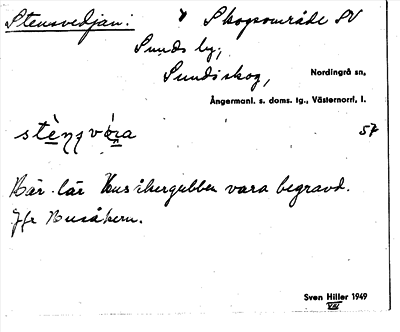 Stensvedjan: Skogsområde SV
Sunds by,
Sundskog, Nordingrå sn,
Ångermanl. s. doms. tg., Västernorrl. l.
57
Här lär Busåkergubben vara begravd.
Jfr Busåkern.
Sven Hiller 1949
VIII